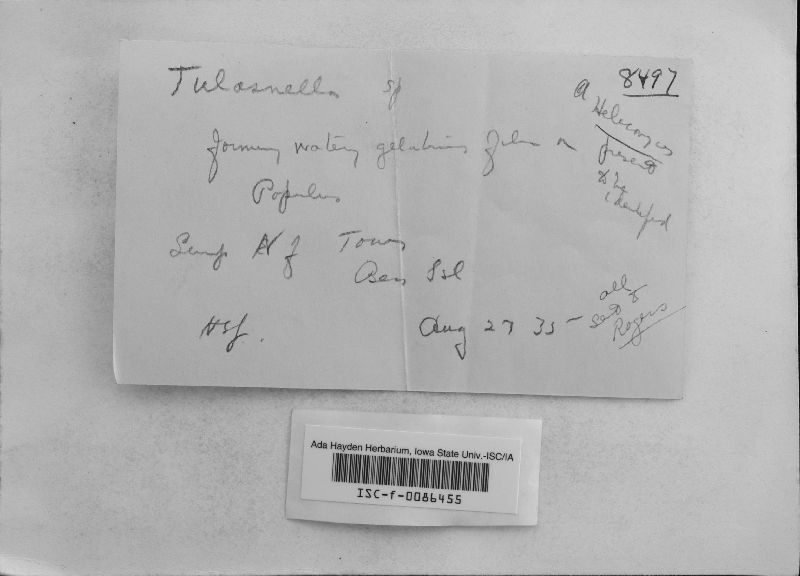 8497
Tulasnella sp
A Helicomyces
present
to be
identified
forming watery gelatinous film on
Populus
N of Tower
Bear Isl
all of
sent
Rogers
HSJ.
Aug 27 35
Ada Hayden Herbarium, Iowa State Univ.-ISC/IA
ISC-f-0086455